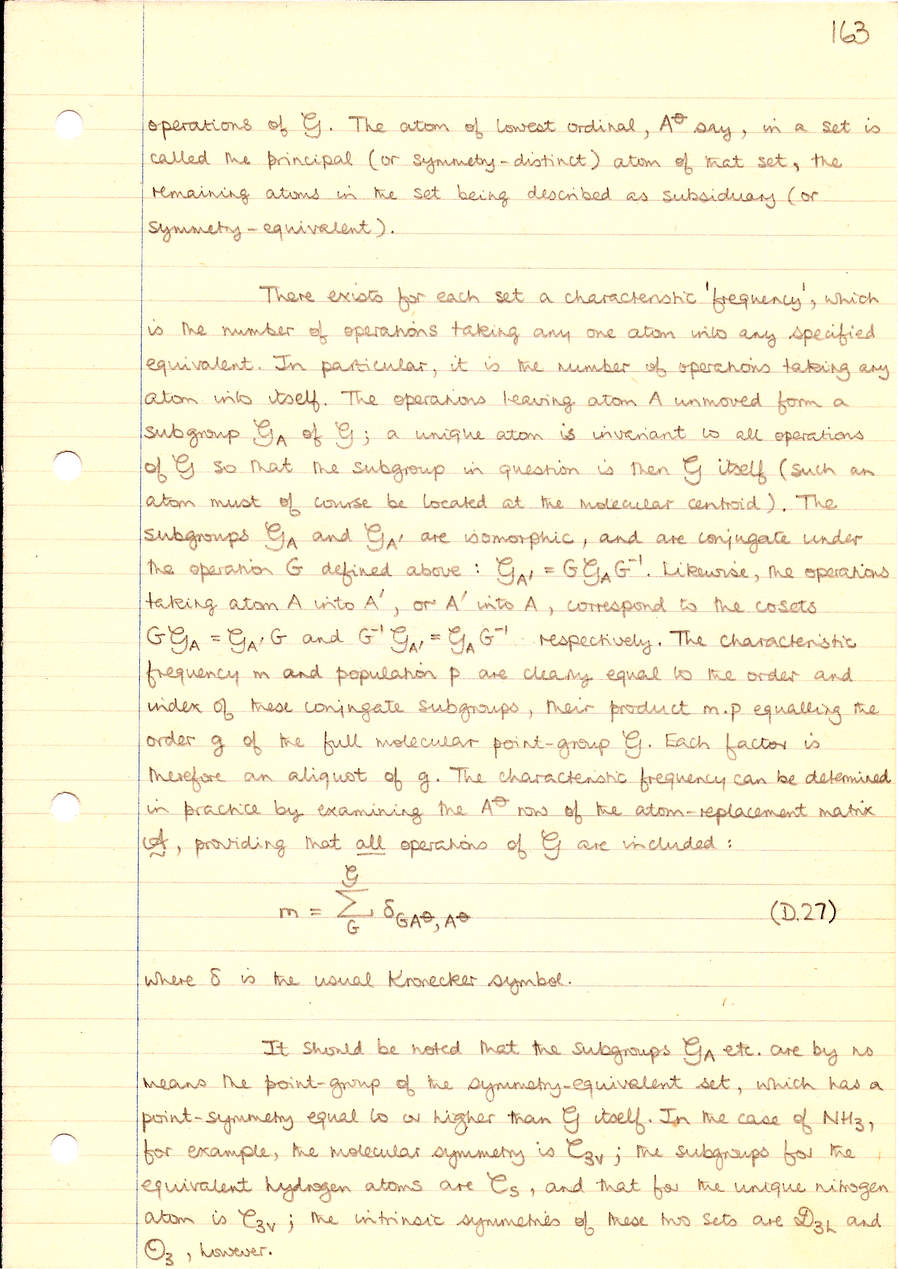 163
operations of 𝒢. The atom of lowest ordinal, A^θ say, in a set is
called the principal (or symmetry-distinct) atom of that set, the
remaining atoms in the set being described as subsiduary (or
symmetry-equivalent).
There exists for each set a characteristic 'frequency', which
is the number of operations taking any one atom into any specified
equivalent. In particular, it is the number of operations taking any
atom into itself. The operations leaving atom A unmoved form a
subgroup 𝒢_A of 𝒢; a unique atom is invariant to all operations
of 𝒢 so that the subgroup in question is then 𝒢 itself (such an
atom must of course be located at the molecular centroid). The
subgroups 𝒢_A and 𝒢_A' are isomorphic, and are conjugate under
the operation G defined above: 𝒢_A' = G𝒢_A G⁻¹. Likewise, the operations
taking atom A into A', or A' into A, correspond to the cosets
G𝒢_A = 𝒢_A' G and G⁻¹𝒢_A' = 𝒢_A G⁻¹ respectively. The characteristic
frequency m and population p are clearly equal to the order and
index of these conjugate subgroups, their product m.p equalling the
order g of the full molecular point-group 𝒢. Each factor is
therefore an aliquot of g. The characteristic frequency can be determined
in practice by examining the A^θ row of the atom-replacement matrix
𝒜, providing that all operations of 𝒢 are included:
m = Σ_G^𝒢 δ_GA^θ, A^θ (D.27)
where δ is the usual Kronecker symbol.
It should be noted that the subgroups 𝒢_A etc. are by no
means the point-group of the symmetry-equivalent set, which has a
point-symmetry equal to or higher than 𝒢 itself. In the case of NH₃,
for example, the molecular symmetry is 𝒞₃ᵥ; the subgroups for the
equivalent hydrogen atoms are 𝒞_s, and that for the unique nitrogen
atom is 𝒞₃ᵥ; the intrinsic symmetries of these two sets are 𝒟₃ₕ and
𝒪₃, however.